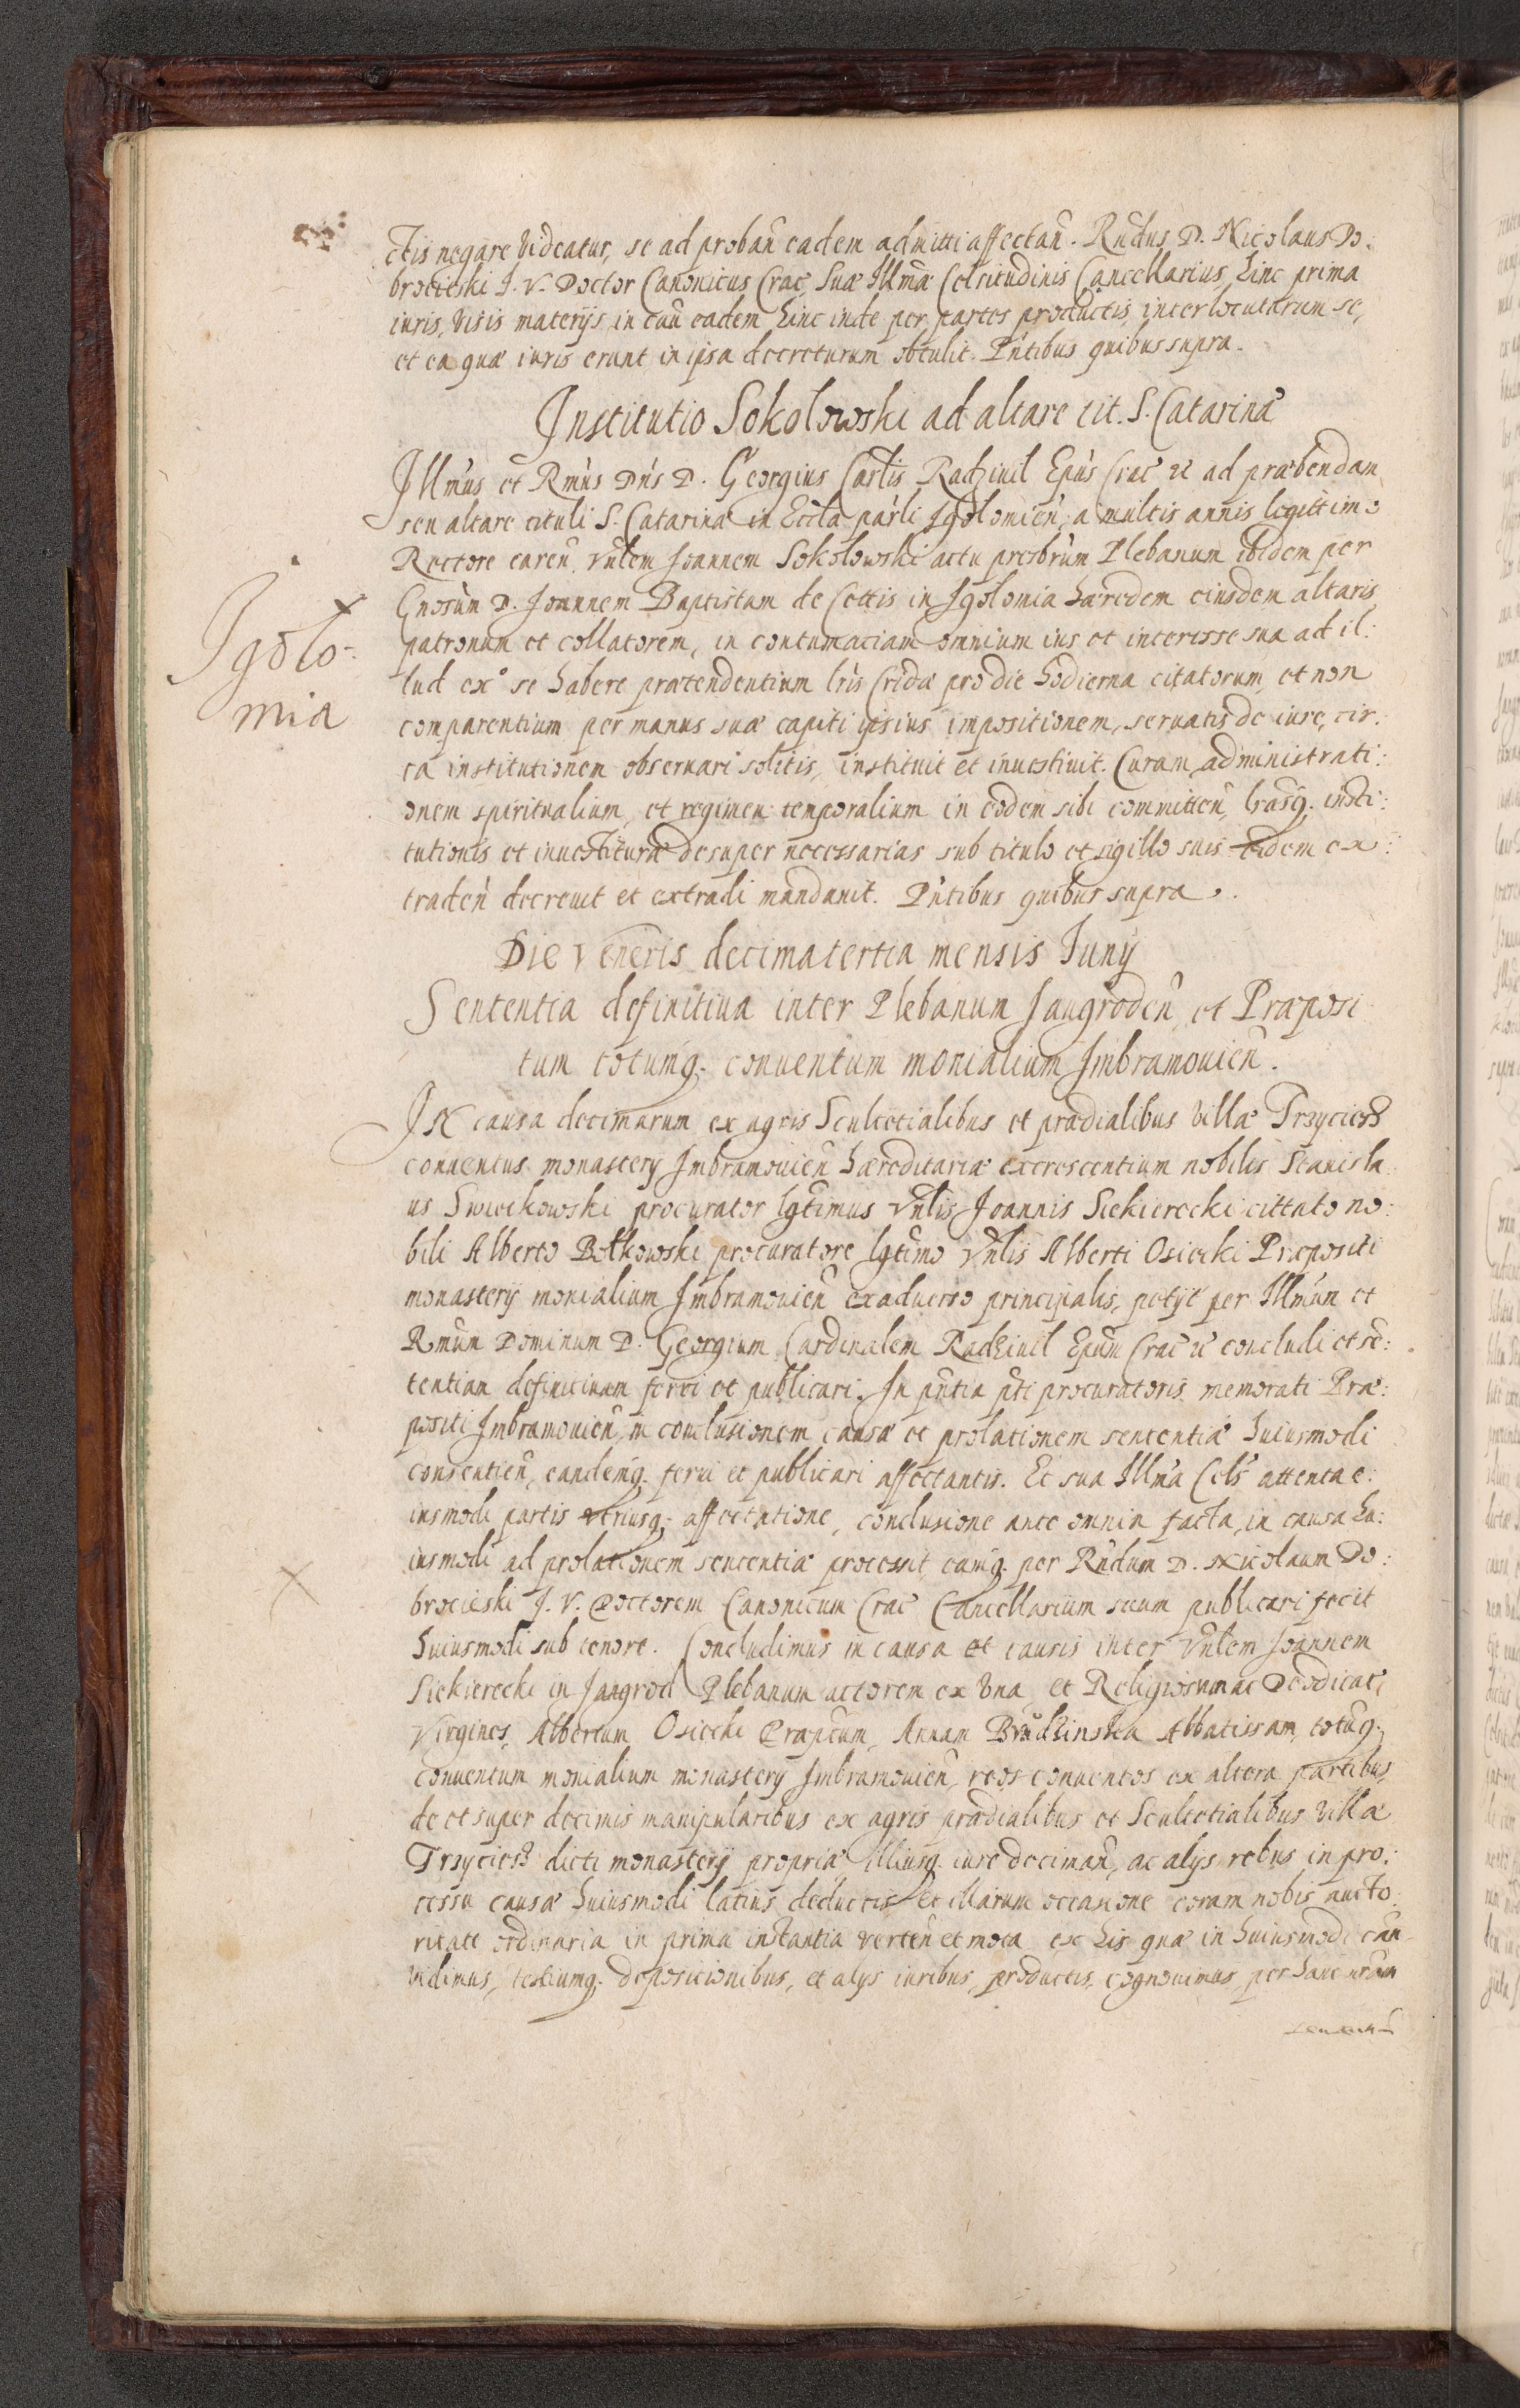 ctis negare videatur, se ad proban̄ eadem admitti affectan̄. Rn̄dus D. Nicolaus Do:
brocieski J. V. Doctor Canonicus Crac̄, Suæ Illmæ Celsitudinis Cancellarius, hinc prima
iuris, visis materijs in cāu eadem hinc inde per partes productis, interlocuturum se,
et ea quæ iuris erunt in ipsa decreturum obtulit. Pn̄tibus quibus supra.
Institutio Sokolowski ad altare tit. S. Catarinæ
Illm̄us et Rm̄us Dn̄s D. Georgius Car̄lis Radziuil Ep̄us Crac̄ &c ad præbendam
seu altare tituli S. Catarinæ in Eccl̄a par̄li Igolomien̄, a multis annis legittimo
Rectore caren̄, vn̄lem Joannem Sokolowski actu presb̄rum Plebanum ibidem per
Gn̄osum D. Joannem Baptistam de Cettis in Igolomia hæredem eiusdem altaris
patronum et collatorem, in contumaciam omnium ius et interesse sua ad il:
Igolo-
mia
lud ex° se habere prætendentium lr̄is Cridæ pro die hodierna citatorum, et non
comparentium per manus suæ capiti ipsius impositionem, seruatis de iure, cir:
ca institutionem obseruari solitis, instituit et inuestiuit. Curam, administrati:
onem spiritualium, et regimen temporalium in eodem sibi committen̄, lr̄asq; insti:
tutionis et inuestituræ desuper necessarias sub titulo et sigillo suis eidem ex:
traden̄ decreuit et extradi mandauit. Pn̄tibus quibus supra.
Die Veneris decimatertia mensis Junij
Sententia definitiua inter Plebanum Jangroden̄, et Præposi
tum totumq; conuentum monialium Imbramouien̄.
IN causa decimarum ex agris Scultetialibus et prædialibus villæ Trzyciesz
conuentus monasterij Imbramouien̄ hæreditariæ excrescentium nobilis Stanisla
us Swieckowski procurator lgt̄imus vn̄lis Joannis Siekierecki cittato no:
bili Alberto Bolkowski procuratore lgt̄imo vn̄lis Alberti Osiecki Præpositi
monasterij monialium Imbramouien̄ exaduerso principalis, petijt per Illm̄um et
Rm̄um Dominum D. Georgium Cardinalem Radziuil Ep̄um Crac̄ &c concludi et sē:
tentiam definitiuam ferri et publicari. In pn̄tia pt̄i procuratoris memorati Præ:
positi Imbramouien̄, in conclusionem causæ et prolationem sententiæ huiusmodi
consentien̄, eandemq; ferri et publicari affectantis. Et sua Illm̄a Cels̄ attenta e:
iusmodi partis vtriusq; affectatione, conclusione ante omnia facta, in causa hu:
iusmodi ad prolationem sententiæ processit, eamq; per Rn̄dum D. Nicolaum Do:
brocieski J. V. Doctorem Canonicum Crac̄ Cancellarium suum publicari fecit
huiusmodi sub tenore. Concludimus in causa et causis inter vn̄lem Joannem
Siekierecki in Jangrod Plebanum actorem ex vna, et Religiosum ac Deo dicatas
Virgines, Albertum Osiecki Præp̄tum, Annam Brudzinska Abbatissam, totūq;
conuentum monialium monasterij Imbramouien̄, reos conuentos ex altera partibus,
de et super decimis manipularibus ex agris prædialibus et Scultetialibus villæ
Trzyciesz dicti monasterij propriæ illiusq; iure deciman̄, ac alijs rebus in pro:
cessu causæ huiusmodi latius deductis et illarum occasione coram nobis aucto:
ritate ordinaria in prima instantia verten̄ et mota ex his quæ in huiusmodi cau
vidimus, testiumq; depositionibus, et alijs iuribus, productis, cognouimus, per hanc nr̄am